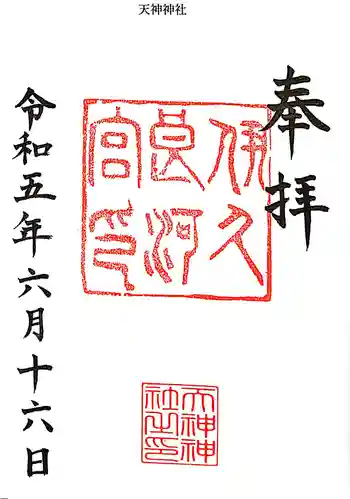 天神神社
奉拝
伊久
邑河
宮印
令和五年六月十六日
天神神
社之印